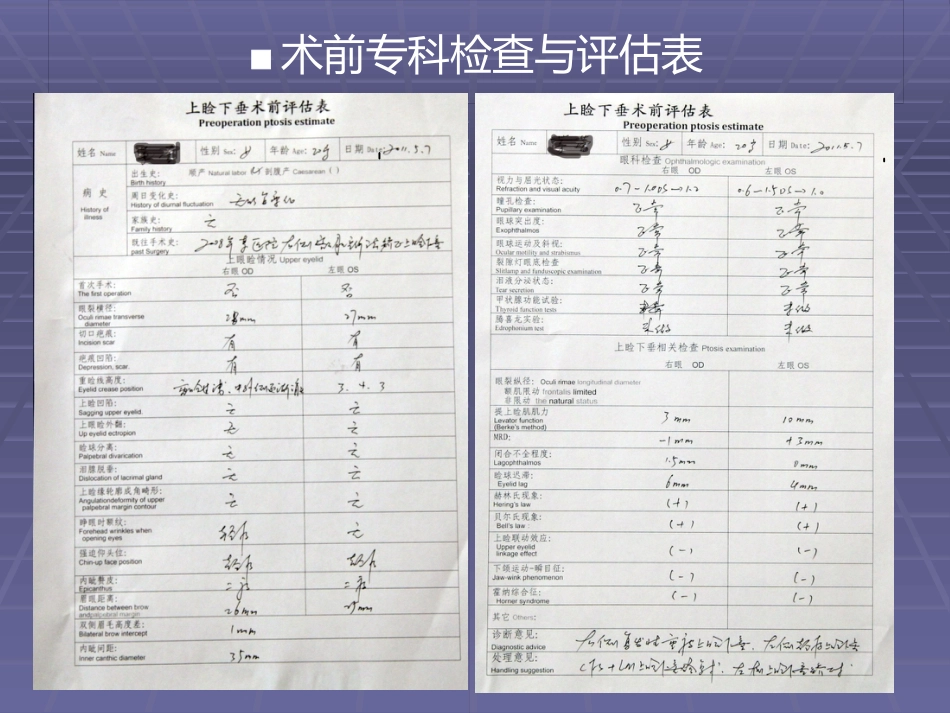 术前专科检查与评估表
上睑下垂术前评估表
Preoperation ptosis estimate
姓名 Name 性别 Sex: 年龄 Age: 20岁 日期 Date: 2011.5.7
病史
History of illness
出生史: 顺产 Natural labor 剖腹产 Caesarean ( )
Birth history
周日变化史:
History of diurnal fluctuation
家族史: 无
Family history
既往手术史:
past Surgery
上眼睑情况 Upper eyelid
右眼 OD 左眼 OS
首次手术: 否 否
The first operation
眼裂横径: 28mm 27mm
Oculi rimae transverse
diameter
切口疤痕: 有 有
Incision scar
疤痕凹陷: 有 有
Depression, scar.
重睑线高度: 3. 4. 3
Eyelid crease position
上睑凹陷: 无 无
Sagging upper eyelid
上眼睑外翻: 无 无
Up eyelid ectropion
睑球分离: 无 无
Palpebral divarication
泪腺脱垂: 无 无
Dislocation of lacrimal gland
上睑缘轮廓成角畸形: 无 无
Angulationdeformity of upper
palpebral margin contour
睁眼时额纹: 轻度 无
Forehead wrinkles when
opening eyes
强迫仰头位: 轻度 轻度
Chin-up face position
内眦赘皮: 二度 二度
Epicanthus
眉眼距离: 26mm
Distance between brow
andpalpebral margin
双侧眉毛高度差: 1mm
Bilateral brow intercept
内眦间距: 35mm
Inner canthic diameter
上睑下垂术前评估表
Preoperation ptosis estimate
姓名 Name 性别 Sex: 年龄 Age: 20岁 日期 Date: 2011.5.7
眼科检查 Ophthalmologic examination
右眼 OD 左眼 OS
视力与屈光状态: 0.7-1.0DS→1.2 0.6-1.50S→1.0
Refraction and visual acuity
瞳孔检查: 正常 正常
Pupillary examination
眼球突出度: 正常 正常
Exophthalmos
眼球运动及斜视: 正常 正常
Ocular motility and strabismus
裂隙灯眼底检查 正常 正常
Slitlamp and funduscopic examination
泪液分泌状态: 正常 正常
Tear secretion
甲状腺功能试验: 未做
Thyroid function tests
腾喜龙实验: 未做 未做
Edrophonium test
上睑下垂相关检查 Ptosis examination
右眼 OD 左眼 OS
眼裂纵径: Oculi rimae longitudinal diameter
额肌限动 frontalis limited
非限动 the natural status
提上睑肌肌力 3mm 10mm
Levator function
(Berke's method)
MRD: -1mm +3mm
闭合不全程度: 1.5mm 0mm
Lagophthalmos
睑球迟滞: 6mm 4mm
Eyelid lag
赫林氏现象: (+) (+)
Hering's law
贝尔氏现象: (+) (+)
Bell's law :
上睑联动效应: (-) (-)
Upper eyelid
linkage effect
下颌运动-瞬目征: (-) (-)
Jaw-wink phenomenon
霍纳综合征: (-) (-)
Horner syndrome
其它 Others:
诊断意见:
Diagnostic advice
处理意见:
Handling suggestion